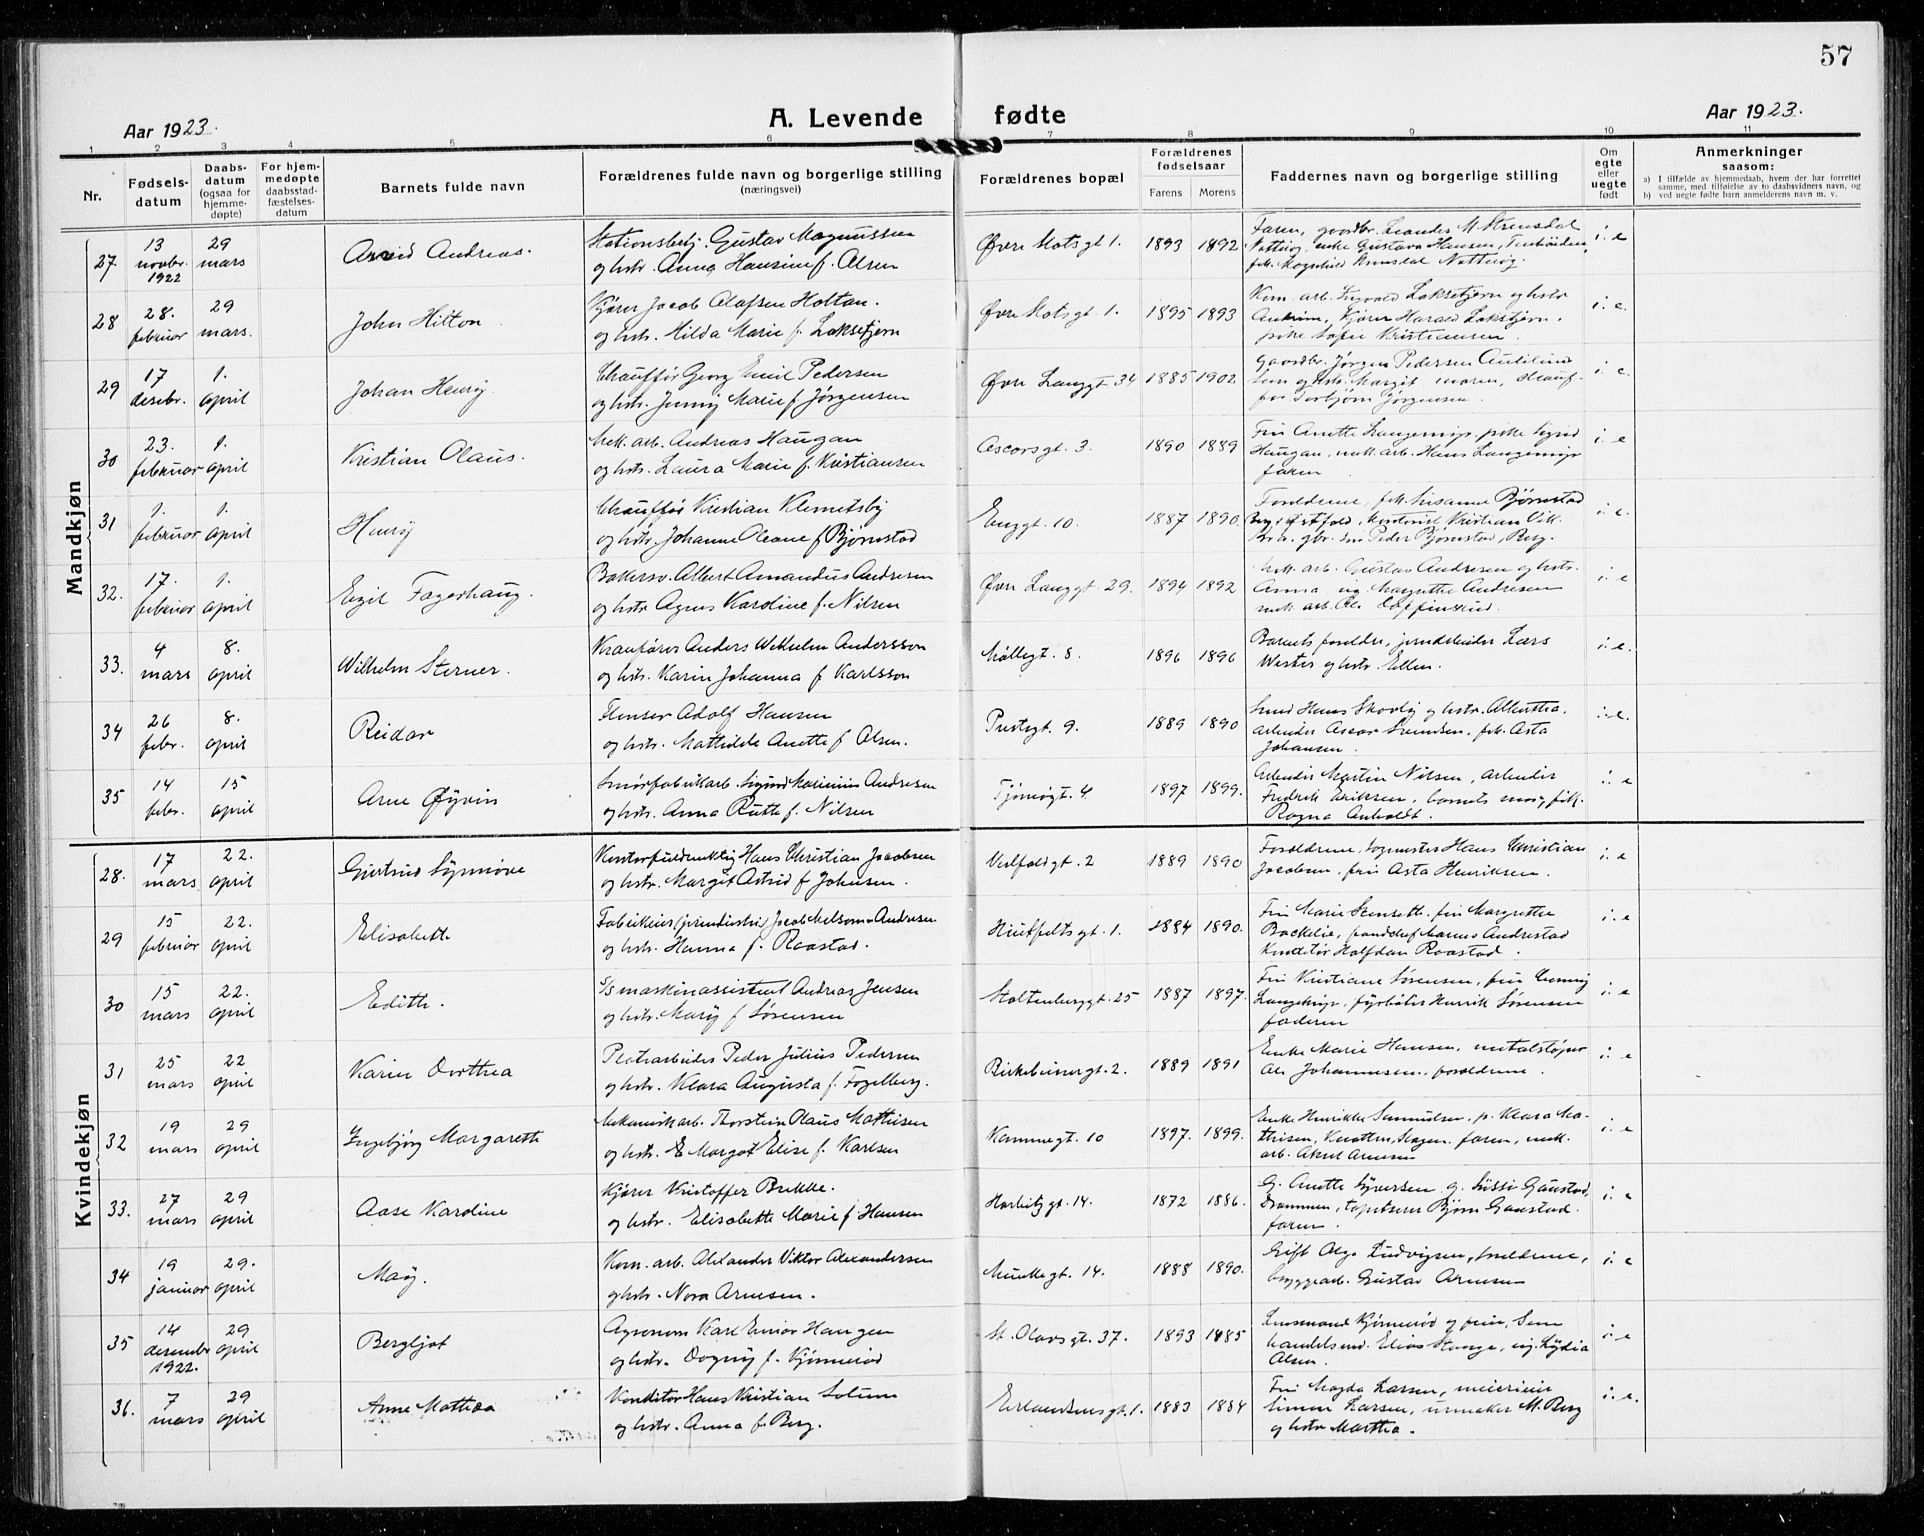 57
Aar 1923.
A. Levende fødte
Aar 1923.
1 2 3 4 5 6 7 8 9 10 11
Nr.
Fødsels-
datum
Daabs-
datum
(ogsaa for
hjemme-
døpte)
For hjem-
medøpte
daabsstad-
fæstelses-
datum
Barnets fulde navn
Forældrenes fulde navn og borgerlige stilling
(næringsvei)
Forældrenes bopæl
Forældrenes
fødselsaar
Farens Morens
Faddernes navn og borgerlige stilling
Om
egte
eller
uegte
født
Anmerkninger
saasom:
a) I tilfælde av hjemmedaab, hvem der har forrettet
samme, med tilføielse av to daabsvidners navn, og
b) ved uegte fødte barn anmelderens navn m. v.
Mandkjøn
27. 13 novbr. 1922 29 mars Arvid Andreas.
Stationsbetj. Gustav Magnussen
og hstr. Anna Hansine f. Olsen
Øvre Slotsgt. 1. 1893 1892
Faren, gaardbr. Leander M. Strensdal
Nøtterø, enke Gustava Hansen,
i. e
28 28. februar 29 mars. John Hilton
Kjører Jacob Olafsen Holtan.
og hstr. Hilda Marie f. Loksetjern
Øvre Slotsgt. 1. 1895 1893
Kom. arb. Ingvald Loksetjern og hstr
Kjører Harald Loksetjern,
pike Sofie Kristiansen.
i. e.
29 17 desebr. 1. april Johan Henrÿ.
Chauffør Georg Emil Pedersen
og hstr. Jenny Marie f. Jørgensen
Øvre Langgt. 34 1885 1902
gaardbr. Jørgen Pedersen
Sem og hstr. Margit, moren, chauf-
før Torbjørn Jørgensen.
i. e.
30 23. februar 1. april Kristian Olaus.
Mek. arb. Andreas Haugan
og hstr. Laura Marie f. Kristiansen
Oscarsgt. 3. 1890 1889
Fru Anette pike Sigrid
Haugan, mek. arb. Hans
faren
i. e
31 1. februar 1. april Henrÿ
Chauffør Kristian Klemetsby
og hstr. Johanne Oleane f Bjørnstad
Enggt. 10. 1887 1890
Forældrene, frk. Susanne Bjørnstad
Berg i Østfold, kontorist Kristian
gbr. søn Peder Bjørnstad, Berg.
i. e.
32. 17. februar 1. april Egil Fagerhaug.
Bakersv. Albert Amandus Andresen
og hstr Agnes Karoline f. Nilsen
Øvre Langgt. 29. 1894 1892
Mek. arb. Gustav Andresen og hstr.
Anna, ug. Margrethe Andresen
mek. arb. Ole
i. e
33. 4 mars 8. april Wilhelm Sterner.
Kranfører Anders Wilhelm Andersson
og hstr. Karin Johanna f Karlsson
Møllegt. 8. 1896 1896
Barnets foreldre, jernarbeider Lars
Wester og hstr. Ellen.
i. e.
34 26 febr. 8. april Reidar
Flenser Adolf Hansen
og hstr. Mathilde Anette f Olsen.
Prestegt. 9. 1889 1890
Smed Hans Skovly og hstr. Albertha.
arbeider Oscar Svendsen, frk. Asta
Johansen.
i. e.
35 14 febr. 15 april Arne Øÿvin
Smørfabrikarb. Sigurd Andresen
og hstr. Anna Ruth f. Nilsen
Tjømøgt. 4 1897 1899.
Arbeider Martin Nilsen, arbeider
Fredrik Eriksen, barnets mor, frk.
Ragna Anholdt.
i. e
Kvindekjøn
28. 17 mars 22. april Gjertrud Synnøve
Kontorfuldmektig Hans Christian Jacobsen
og hstr. Margit Astrid f Johnsen.
Vestfoldgt. 2 1889 1890
Forældrene, Hans Christian
Jacobsen, fru Asta Henriksen.
i. e
29 15 februar 22. april Elisabeth
Fabrikeier (jernindustri) Jacob Melsom Andresen
og hstr. Hanna f. Raastad.
Huitfeltsgt. 1. 1884 1890.
Fru Marie Stenseth, fru Margrethe
Baekelie, Marius Andrestad
Konditor Halfdan Raastad.
i. e
30 15 mars 22. april Edith.
S/S maskinassistent Andreas Jensen
og hstr. Marÿ f Sørensen
Stoltenberggt. 25 1887 1897.
Fru Kristiane Sørensen, fru
fyrbøter Henrik Sørensen
faderen
i. e
31 25 mars 22 april Karin Dorthea
Platearbeider Peder Julius Pedersen
og hstr. Klara Augusta f. Fogelberg.
Birkebeinergt. 2. 1889 1891
Enke Marie Hansen, metalstøper
Ole Johannesen, foreldrene.
i. e
32 19 mars 29 april Ingebjørg Margareth
Mekanisk arb. Thorstein Olaus Mathisen
og hstr. E Margot Elise f. Karlsen
Kammegt. 10 1897. 1899.
Enke Henrikke Samuelsen. p. Klara Ma-
thisen, Knatten, Slagen. faren, mek.
arb. Aksel Arnesen
i. e
33. 27 mars 29 april Aase Karoline
Kjører Kristoffer Bukke.
og hstr. Elisabeth Marie f. Hansen
Harbitzgt. 14. 1872 1886.
G. Anette Syversen, g. Sissi Gaustad,
Drammen, tapetserer Bjørn Gaustad.
faren.
i. e
34 19 januar 29. april Maÿ.
Kom. arb. Alexander Viktor Alexandersen
og hstr. Nora Arnesen.
Munkegt. 14. 1888 1890.
Gift Olga Ludvigsen, foreldrene,
bryggearb. Gustav Arnesen
i. e
35 14 desember 1922. 29 april Bergljot
Agronom Karl Einar Haugen
og hstr. Dagny f. Kjønnerød
St. Olavsgt. 37. 1893 1885
Lensmand Kjønnerød og frue, Sem
handelsmd. Elias Stange, ug. Lydia
Olsen.
i. e
36. 7 mars 29 april Anne Mathea
Konditor Hans Kristian Solum
og hstr. Anna f. Berg.
Erlandsensgt. 1. 1883 1884
Fru Magda Larsen, meierieier
Simon Larsen, urmaker M. Berg
og hstr Marthea.
i. e.